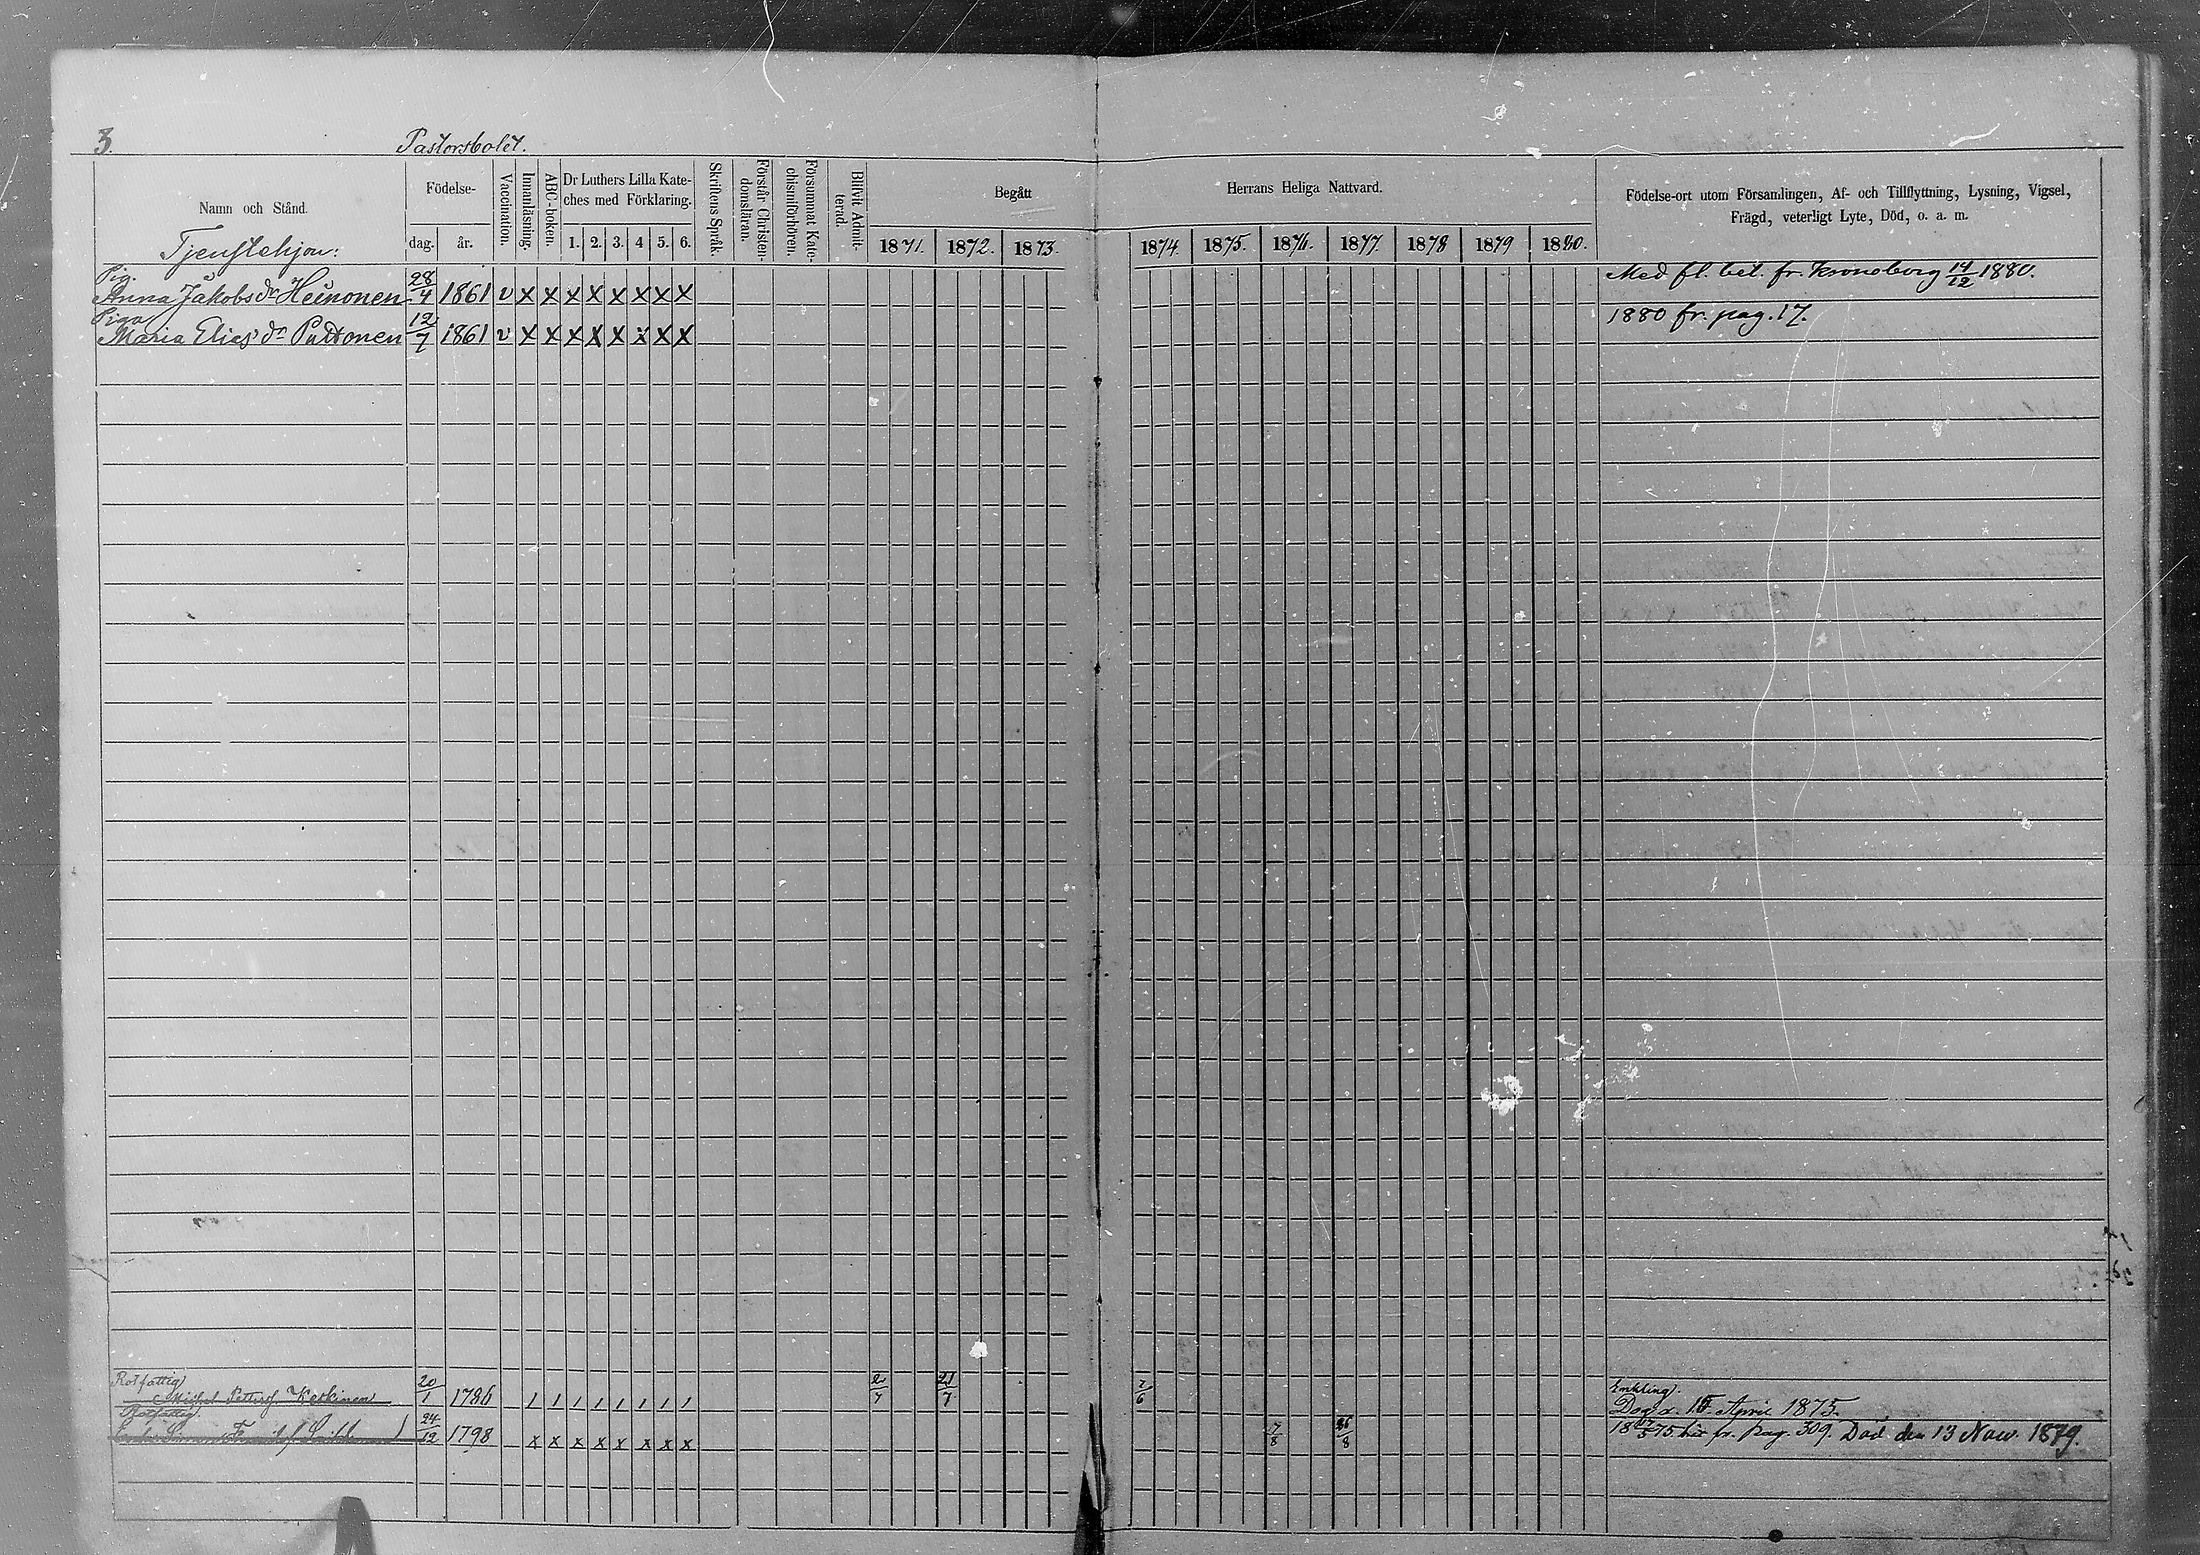 3.
Pastorsbolet.
Namn och Stånd.
Tjenstehjon:
Födelse-
dag. år.
Vaccination.
Innanläsning.
ABC-boken.
Dr Luthers Lilla Kate-
ches med Förklaring.
1. 2. 3. 4 5. 6.
Skriftens Språk.
Förstår Christen-
domsläran.
Försummat Kate-
chismiförhören.
Blifvit Admit-
terad.
Begått
1871. 1872. 1873.
Herrans Heliga Nattvard.
1874. 1875. 1876. 1877. 1878 1879 1880.
Födelse-ort utom Församlingen, Af- och Tillflyttning, Lysning, Vigsel,
Frägd, veterligt Lyte, Död, o. a. m.
Pig.
Anna Jakobs dr Heinonen 28/4 1861 v x x x x x x x x Med fl. bet. fr. Kronoborg 14/12 1880.
Piga
Maria Elias dr Puttonen 12/7 1861 v x x x x x x x x 1880 fr. pag. 17.
Rotfattig
Michel Keskinen 20/1 1786 / / / / / / / / 2/7 21/7 7/6
Enkling.
Död d. April 1875.
Rotfattig.
24/12 1798 x x x x x x x x 7/8 /8 fr. Pag. 309. Död den 13 Nov. 1879.